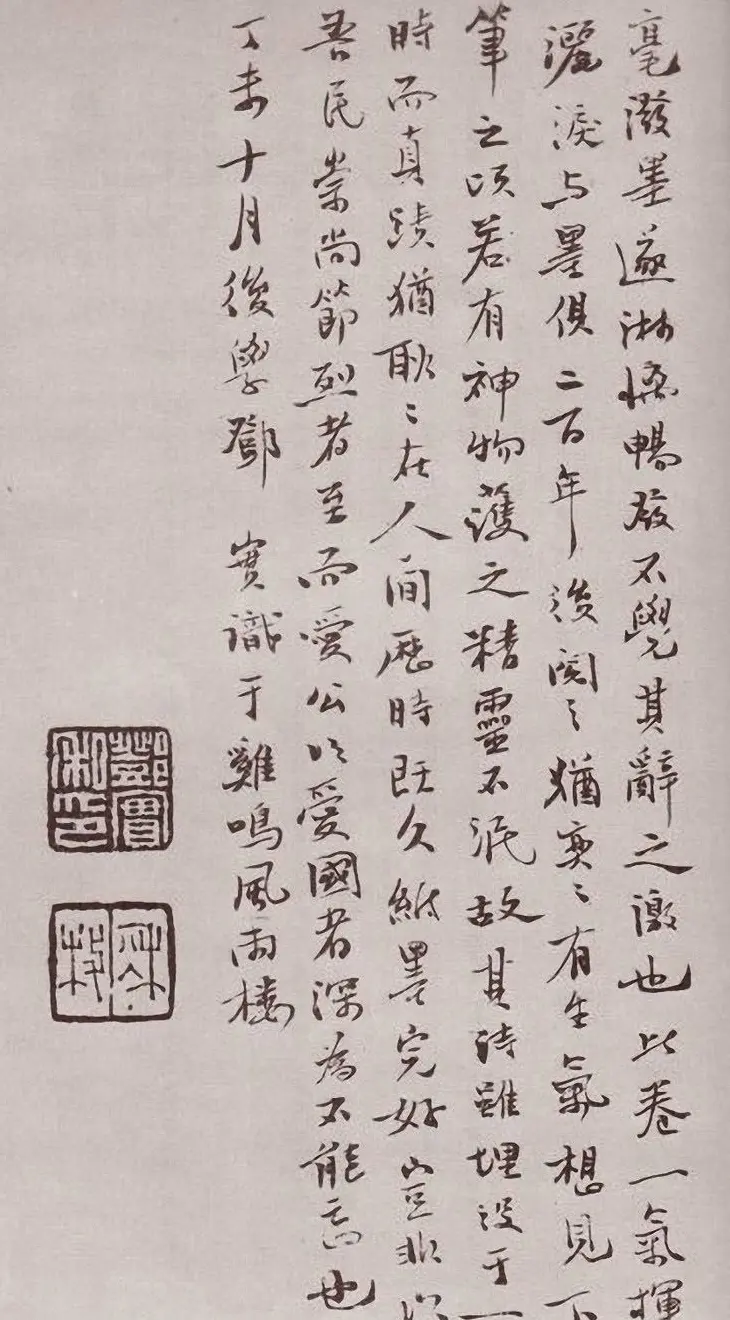 毫潑墨遂淋漓暢發不覺其辭之激也此卷一氣揮
灑淚与墨俱二百年後閱之猶奕〻有生氣想見下
筆之頃若有神物護之精靈不泯故其詩雖埋沒于一
時而真蹟猶耿〻在人間歷時既久紙墨完好豈非以
吾民崇尚節烈者至而愛公以愛國者深為不能忘也
丁未十月後學鄧 實識于雞鳴風雨樓
鄧實
秋枚